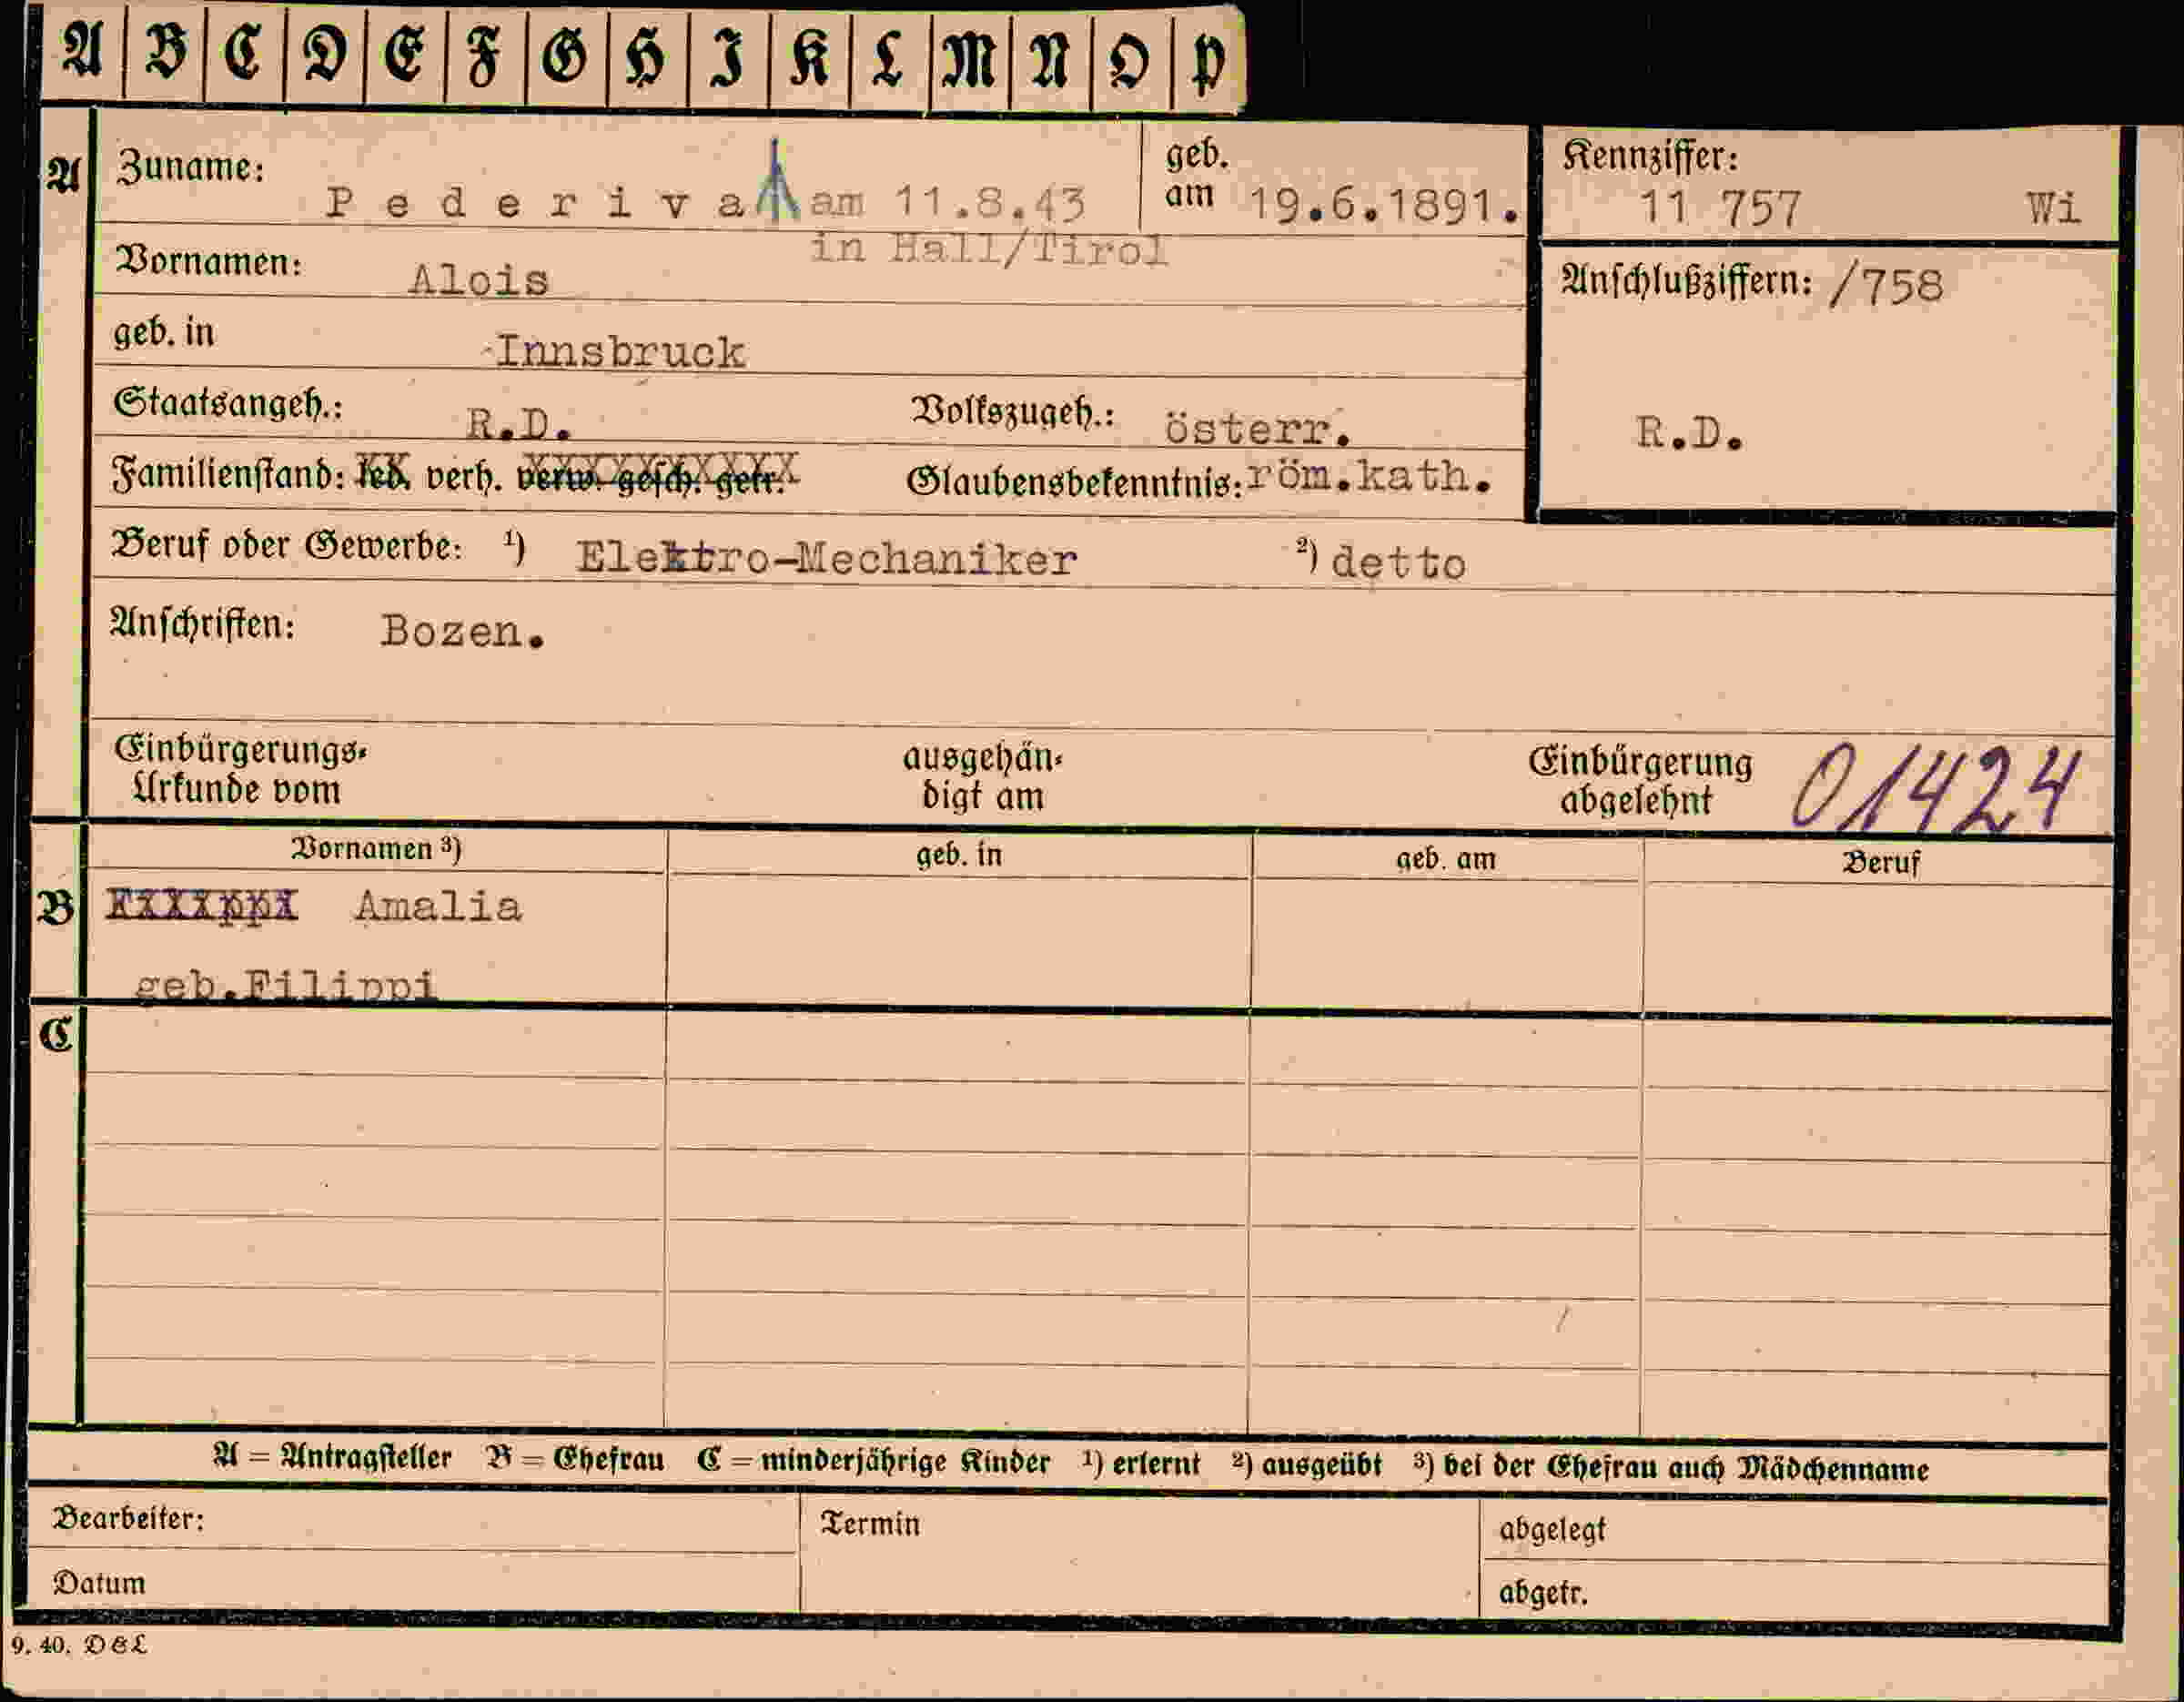 A B C D E F G H I K L M N O P
A Zuname: Pederiva am 11.8.43 geb. am 19.6.1891.
in Hall/Tirol
Vornamen: Alois
geb. in Innsbruck
Staatsangeh.: R.D. Volkszugeh.: österr.
Familienstand: led. verh. verw. gesch. getr. Glaubensbekenntnis: röm.kath.
Kennziffer: 11 757 Wi
Anschlußziffern: /758
R.D.
Beruf oder Gewerbe: ¹) Elektro-Mechaniker ²) detto
Anschriften: Bozen.
Einbürgerungs- ausgehän- Einbürgerung 01424
Urkunde vom digt am abgelehnt
Vornamen ³) geb. in geb. am Beruf
B Filippi Amalia
geb.Filippi
C
A = Antragsteller B = Ehefrau C = minderjährige Kinder ¹) erlernt ²) ausgeübt ³) bei der Ehefrau auch Mädchenname
Bearbeiter: Termin abgelegt
Datum abgetr.
9. 40. D&L